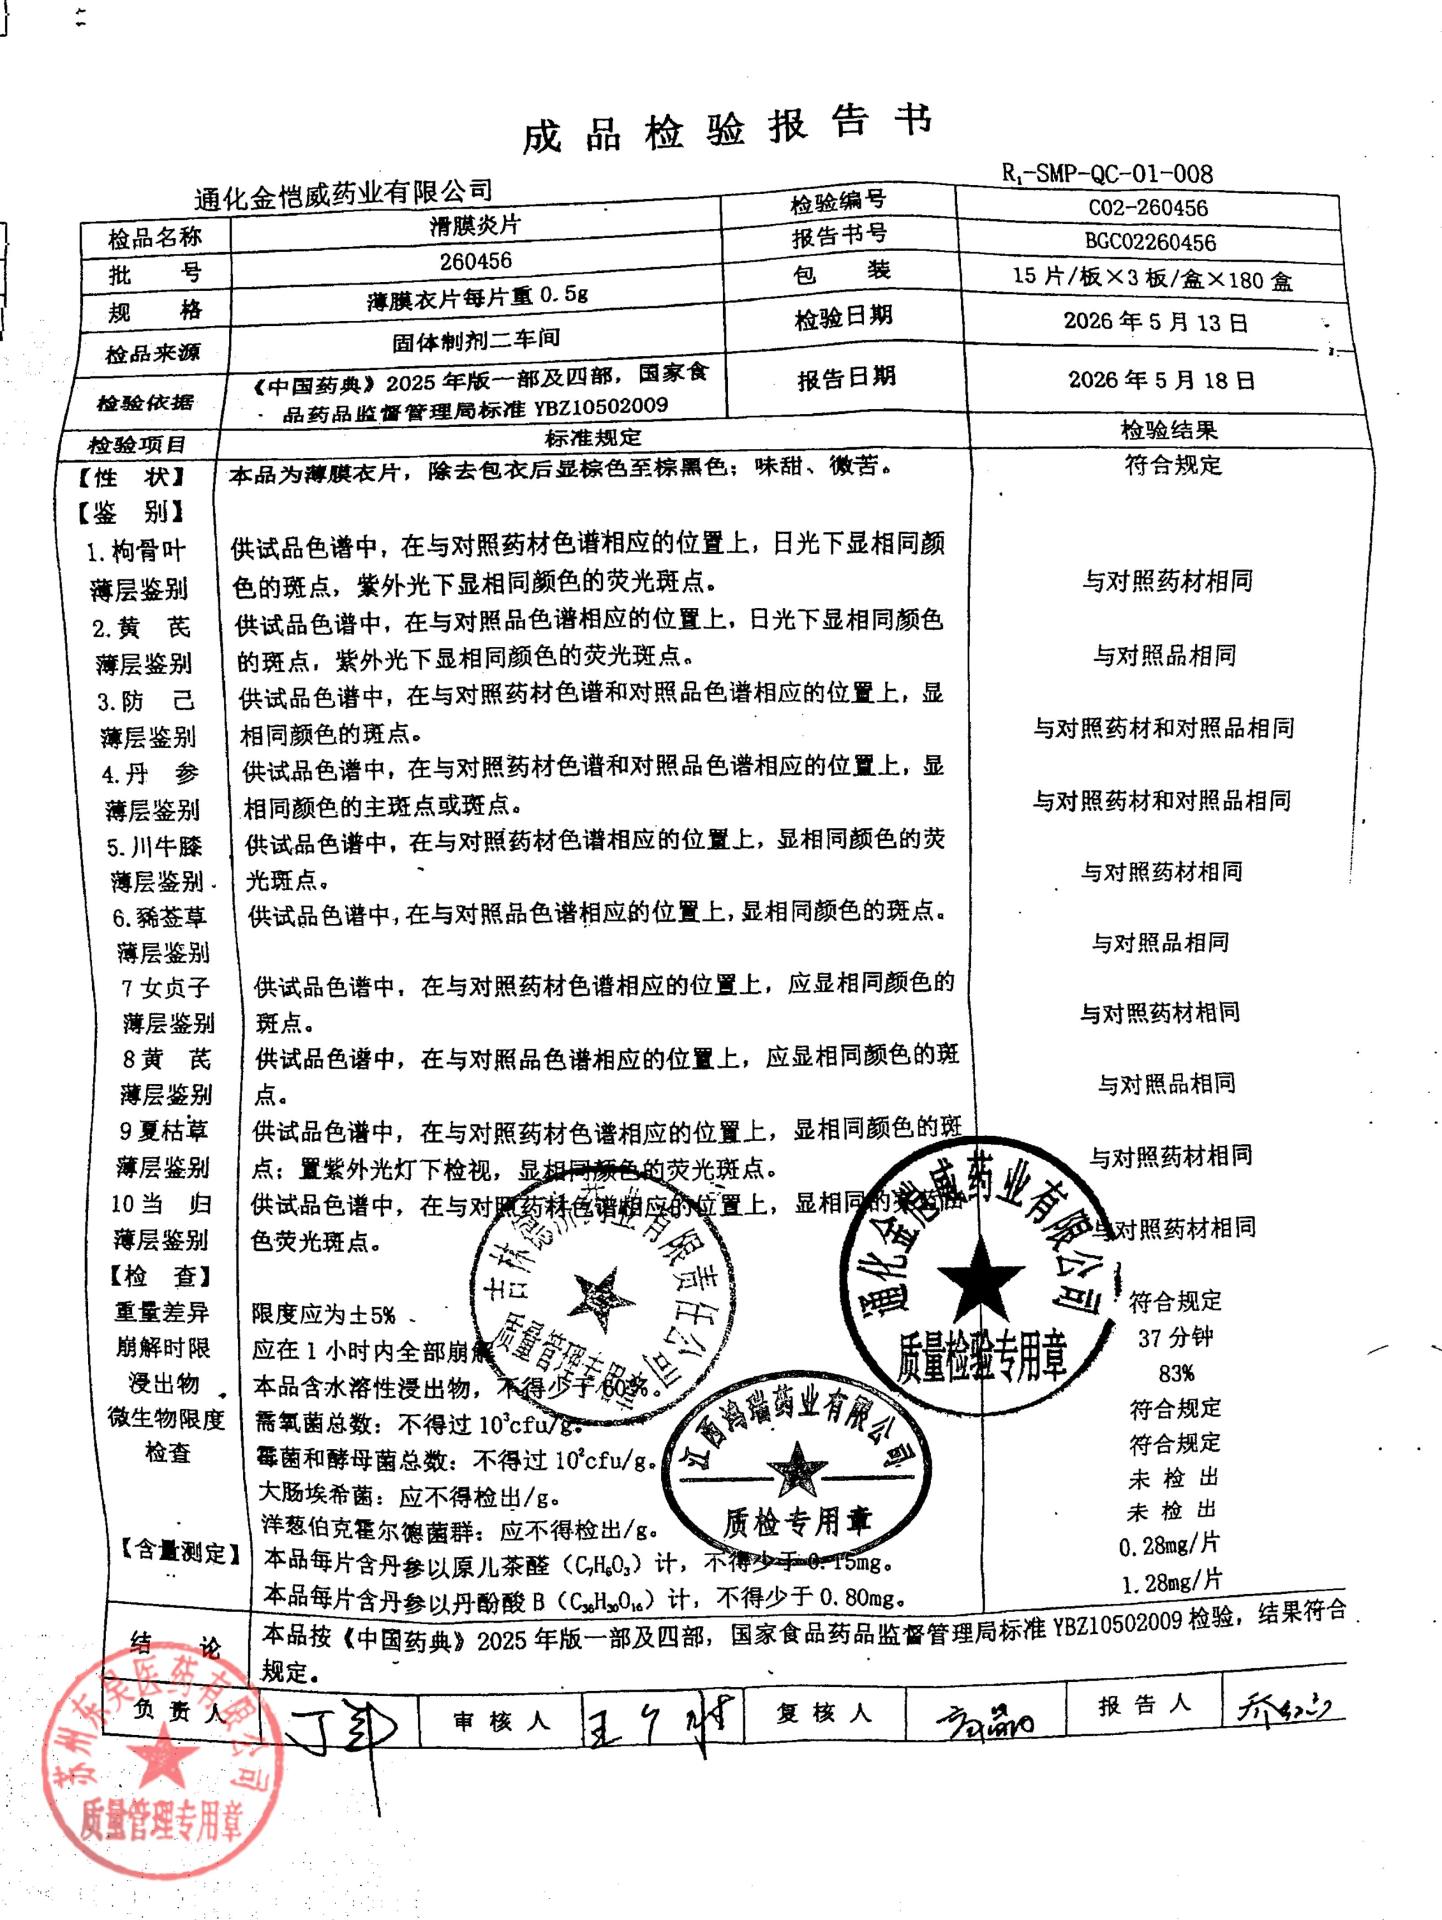 成品检验报告书
R₁-SMP-QC-01-008
通化金恺威药业有限公司
检品名称 滑膜炎片 检验编号 C02-260456
批 号 260456 报告书号 BGC02260456
规 格 薄膜衣片每片重 0.5g 包 装 15 片/板×3 板/盒×180 盒
检品来源 固体制剂二车间 检验日期 2026 年 5 月 13 日
检验依据 《中国药典》2025 年版一部及四部，国家食品药品监督管理局标准 YBZ10502009 报告日期 2026 年 5 月 18 日
检验项目 标准规定 检验结果
【性 状】 本品为薄膜衣片，除去包衣后显棕色至棕黑色；味甜、微苦。 符合规定
【鉴 别】
1.枸骨叶 供试品色谱中，在与对照药材色谱相应的位置上，日光下显相同颜
薄层鉴别 色的斑点，紫外光下显相同颜色的荧光斑点。 与对照药材相同
2.黄 芪 供试品色谱中，在与对照品色谱相应的位置上，日光下显相同颜色
薄层鉴别 的斑点，紫外光下显相同颜色的荧光斑点。 与对照品相同
3.防 己 供试品色谱中，在与对照药材色谱和对照品色谱相应的位置上，显
薄层鉴别 相同颜色的斑点。 与对照药材和对照品相同
4.丹 参 供试品色谱中，在与对照药材色谱和对照品色谱相应的位置上，显
薄层鉴别 相同颜色的主斑点或斑点。 与对照药材和对照品相同
5.川牛膝 供试品色谱中，在与对照药材色谱相应的位置上，显相同颜色的荧
薄层鉴别 光斑点。 与对照药材相同
6.豨莶草 供试品色谱中，在与对照品色谱相应的位置上，显相同颜色的斑点。
薄层鉴别 与对照品相同
7 女贞子 供试品色谱中，在与对照药材色谱相应的位置上，应显相同颜色的
薄层鉴别 斑点。 与对照药材相同
8 黄 芪 供试品色谱中，在与对照品色谱相应的位置上，应显相同颜色的斑
薄层鉴别 点。 与对照品相同
9 夏枯草 供试品色谱中，在与对照药材色谱相应的位置上，显相同颜色的斑
薄层鉴别 点；置紫外光灯下检视，显相同颜色的荧光斑点。 与对照药材相同
10 当 归 供试品色谱中，在与对照药材色谱相应的位置上，显相同的
薄层鉴别 色荧光斑点。 与对照药材相同
【检 查】
重量差异 限度应为±5% 符合规定
崩解时限 应在 1 小时内全部崩解 37 分钟
浸出物 本品含水溶性浸出物，不得少于 60%。 83%
微生物限度 需氧菌总数：不得过 10³cfu/g。 符合规定
检查 霉菌和酵母菌总数：不得过 10²cfu/g。 符合规定
大肠埃希菌：应不得检出/g。 未 检 出
洋葱伯克霍尔德菌群：应不得检出/g。 未 检 出
【含量测定】 本品每片含丹参以原儿茶醛（C₇H₆O₃）计，不得少于 0.15mg。 0.28mg/片
本品每片含丹参以丹酚酸 B（C₃₆H₃₀O₁₆）计，不得少于 0.80mg。 1.28mg/片
结 论 本品按《中国药典》2025 年版一部及四部，国家食品药品监督管理局标准 YBZ10502009 检验，结果符合
规定。
负 责 人 审 核 人 复 核 人 报 告 人
通化金恺威药业有限公司
质量检验专用章
有限责任公司
江西鸿瑞药业有限公司
质检专用章
苏州东吴医药有限公司
质量管理专用章